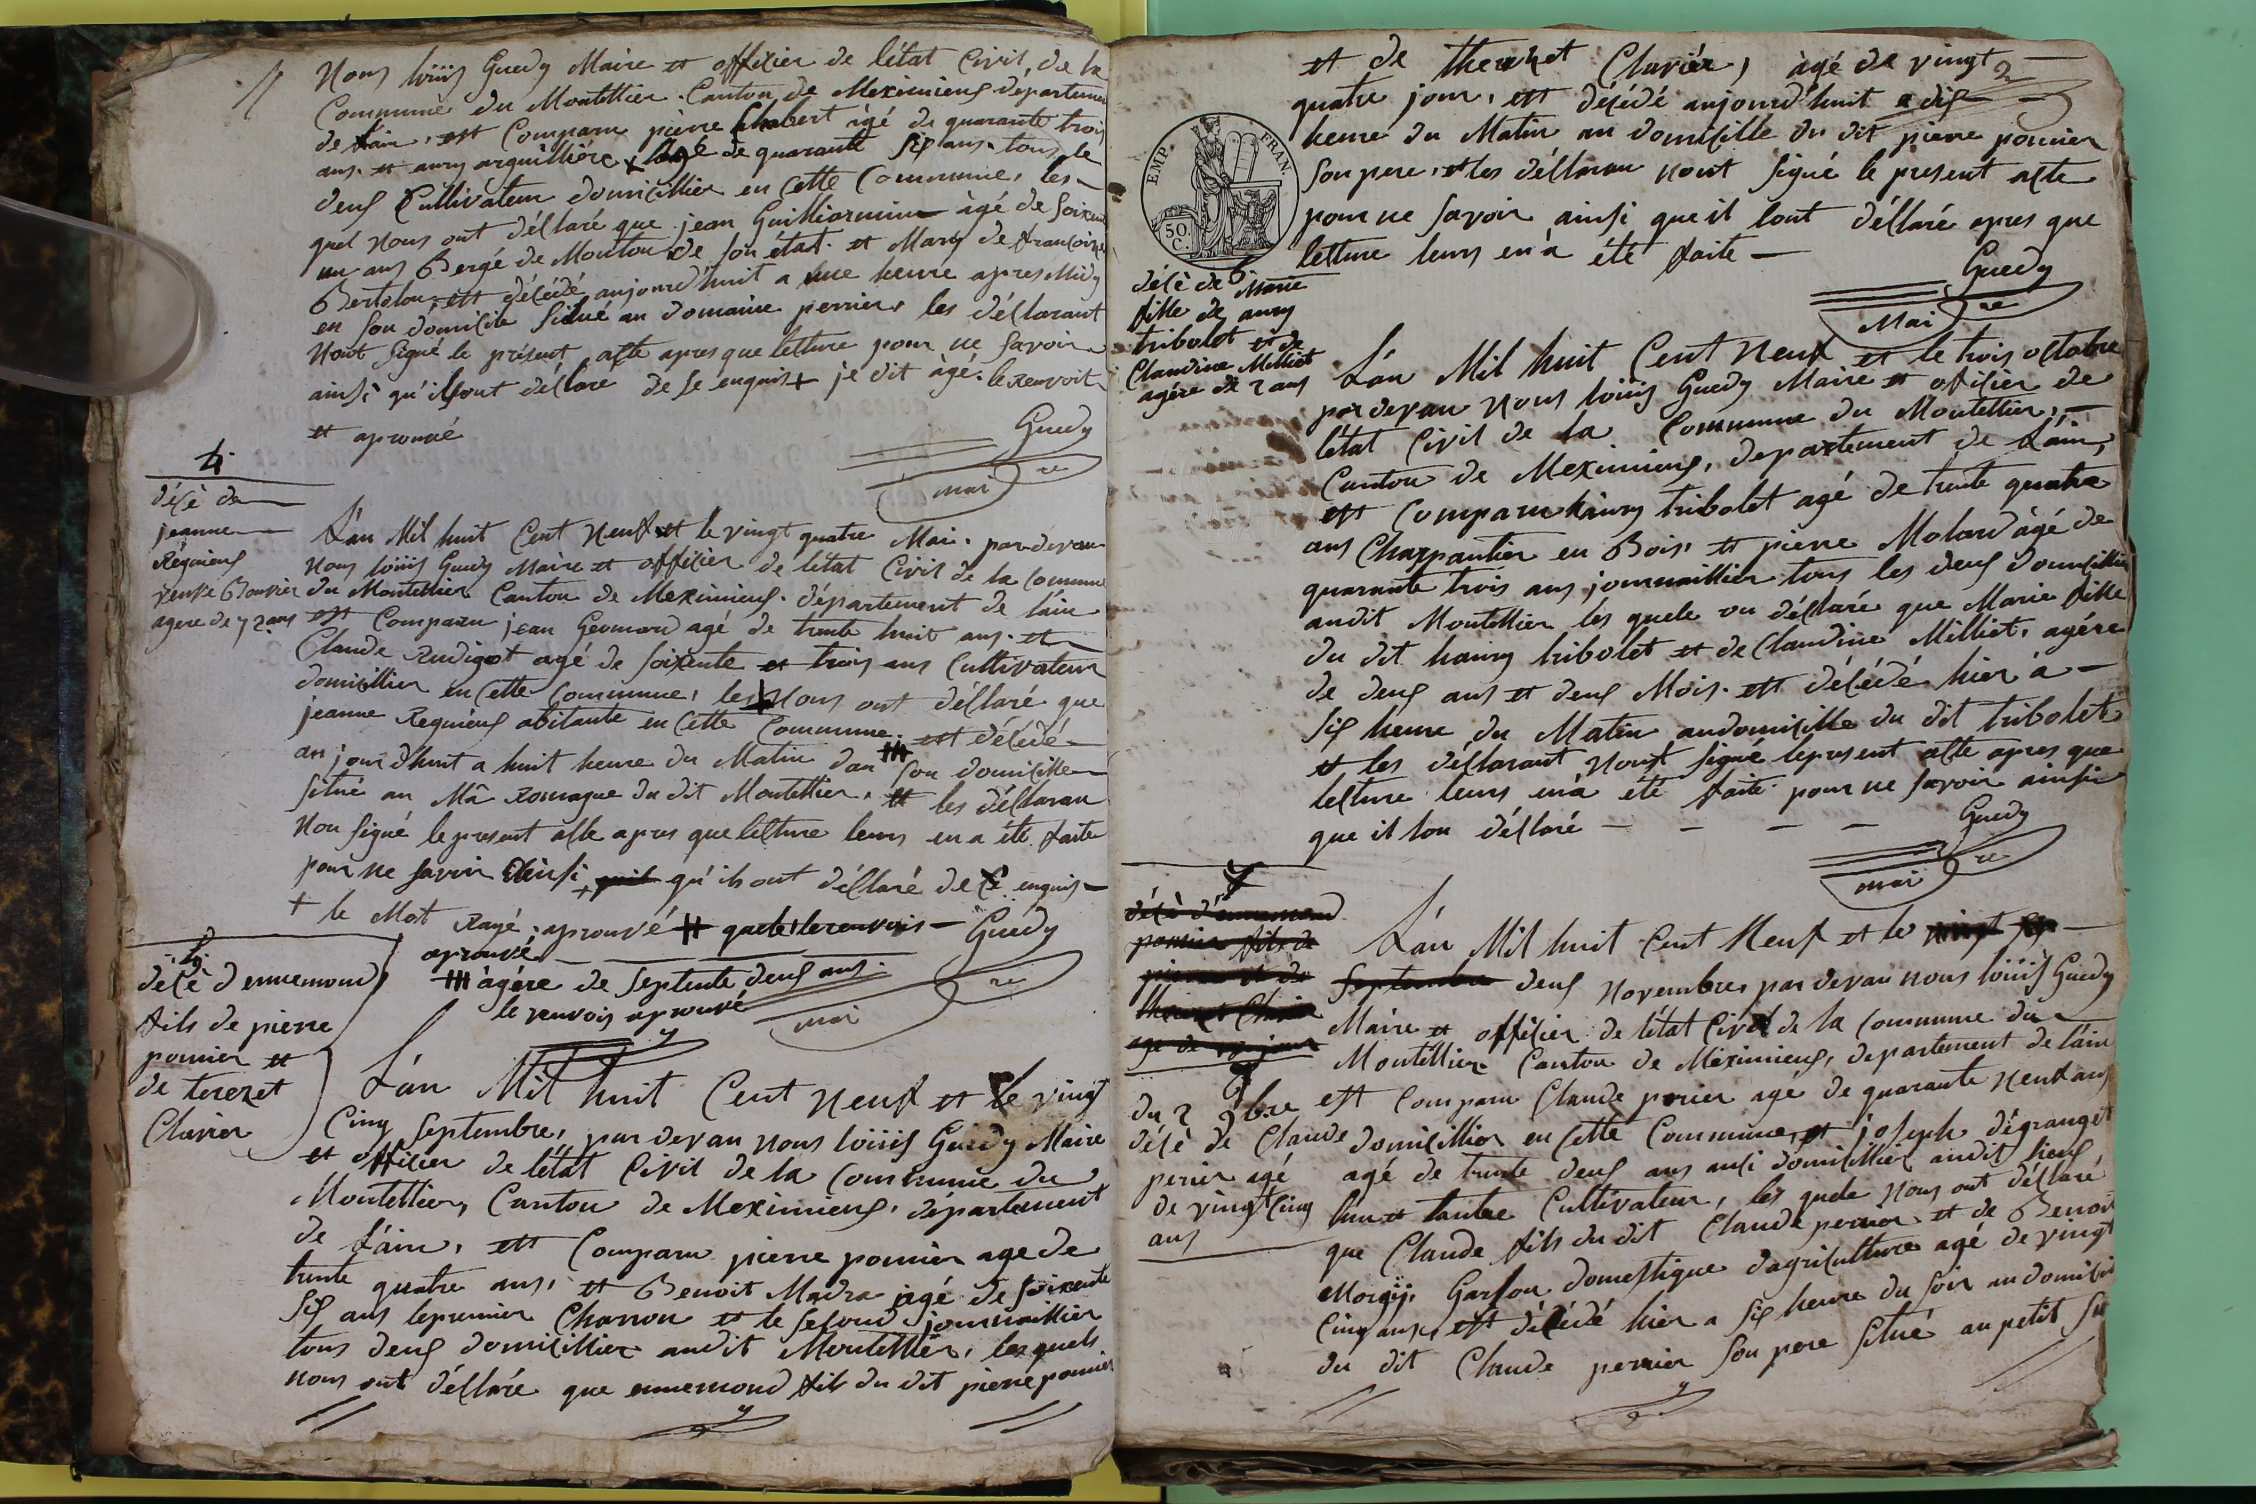 Nous loüis Guedy Maire et officier de l'état Civil, de la
Commune du Montellier. Canton de Meximieux departemen
de l'ain, est Comparu pierre Chabert àgé de quarante trois
ans. et aury arguilliére + de quarante six ans. tous le
deux Cultivateur domicillier en Cette Commune, les
quel nous ont déllaré que jean Guilliarmin àgé de soixen
un ans Bergé de Mouton de son état. et Mary de francoise
Bertelon. est décédé aujourd'huit a une heure apres Midy
en son domicile situé au domaine perrier les déllarant
Nont signé le présent acte apres que letture pour ne savoir
ainsi qu'ilsont déllare de se enquis + je dit àgé. le renvoit
et aprouvé
Guedy
mai re
4.
décè de
jeanne
Requieus
veuve Bouvier
agere de 72 ans
L'an Mil huit Cent Neuf et le vingt quatre Mai. par devan
Nous loüis Guedy Maire et officier de létat Civil de la Commune
du Montellier Canton de Meximieux. département de l'ain
est Comparu jean Geomard agé de trente huit ans. et
Claude Rudigot agé de soixente et trois ans Cultivateur
domicillier en Cette Commune, les Nous ont déllaré que
jeanne Requieus abitante en Cette Commune. est décédé
aujourdhuit a huit heure du Matin dan son domicille
situé au Mâ Romague du dit Montellier. et les déllaran
Non signé le present alte apres que letture leurs en a été faite
pour ne savoir Ainsi + quil qu'ils ont déllaré de ce enquis
+ le Mot Rayé. aprouvé # quele lerenvois Guédy
aprouvé
# àgére de septente deux ans.
le renvois aprouvé
mai re
5.
décè d ennemond
fils de pierre
pounier et
de terezet
Clavier
L'an Mil huit Cent Neuf et le vingt
Cinq Septembre, par devan nous loüis Guedy Maire
et officier de létat Civil de la Commune du
Montellier, Canton de Meximieux, département
de l'ain, est Comparu pierre pounier age de
trente quatre ans, et Benoit Madra agé de soixente
six ans lepremier Charron et le second journaillier
tous deux domicillier audit Montellier, lesquels
nous ont déllaré que ennemond fils du dit pierre pounier
et de therezet Clavier, àgé de vingt
quatre jour, est décédé aujourd'huit a dix
heure du Matin au domicille du dit pierre pounier
son pere, et les déllaran nont signé le present alte
pour ne savoir ainsi que il lont déllaré apres que
letture leurs en à été faite
2
EMP. FRAN.
50.
C.
Guedy
Mai re
6
décè de Marie
fille de aury
tribolet et de
Claudine Milliet
agére de 2 ans
L'an Mil huit Cent Neuf et le trois octobre
par devan Nous loüis Guedy Maire et oficier de
létat Civil de la Commune du Montellier,
Canton de Meximieux, departement de l'ain,
est Comparu haury tribolet agé de trente quatre
ans Charpantier en Bois. et pierre Molard àgé de
quarante trois ans journaillier tous les deux domicillier
audit Montellier les quele on déllaré que Marie fille
du dit haury tribolet et de Claudine Milliet. agére
de deux ans et deux Mois. est décédé hier à
six heure du Matin audomicille du dit tribolet
et les déllarant Nont signé lepresent alte apres que
letture leurs en à été faite pour ne savoir ainsi
que il lon déllaré
Guedy
mai re
7
décè d'ennemond
pounier fils de
pierre et de
therezet Clavier
age de 24 jour
7
du 2 9bre
décè de Claude
perier agé
de vingt Cinq
ans
L'an Mil huit Cent Neuf et le vingt
Septembre deux novembre, par devan nous loüis Guedy
Maire et officier de létat Civil de la Commune du
Montellier Canton de Meximieux, departement de l'ain
est Comparu Claude perier agé de quarante neuf ans
domicillier en Cette Commune, et joseph dégranget
agé de trente deux ans ausi domicillier audit lieux
lun et lautre Cultivateur, les quele nous ont déllaré
que Claude fils du dit Claude perrier et de Benoit
Garson domestique dagriculture agé de vingt
Cinq ans, est décédé hier a six heure du soir au domicil
du dit Claude perrier son pere situé au petit